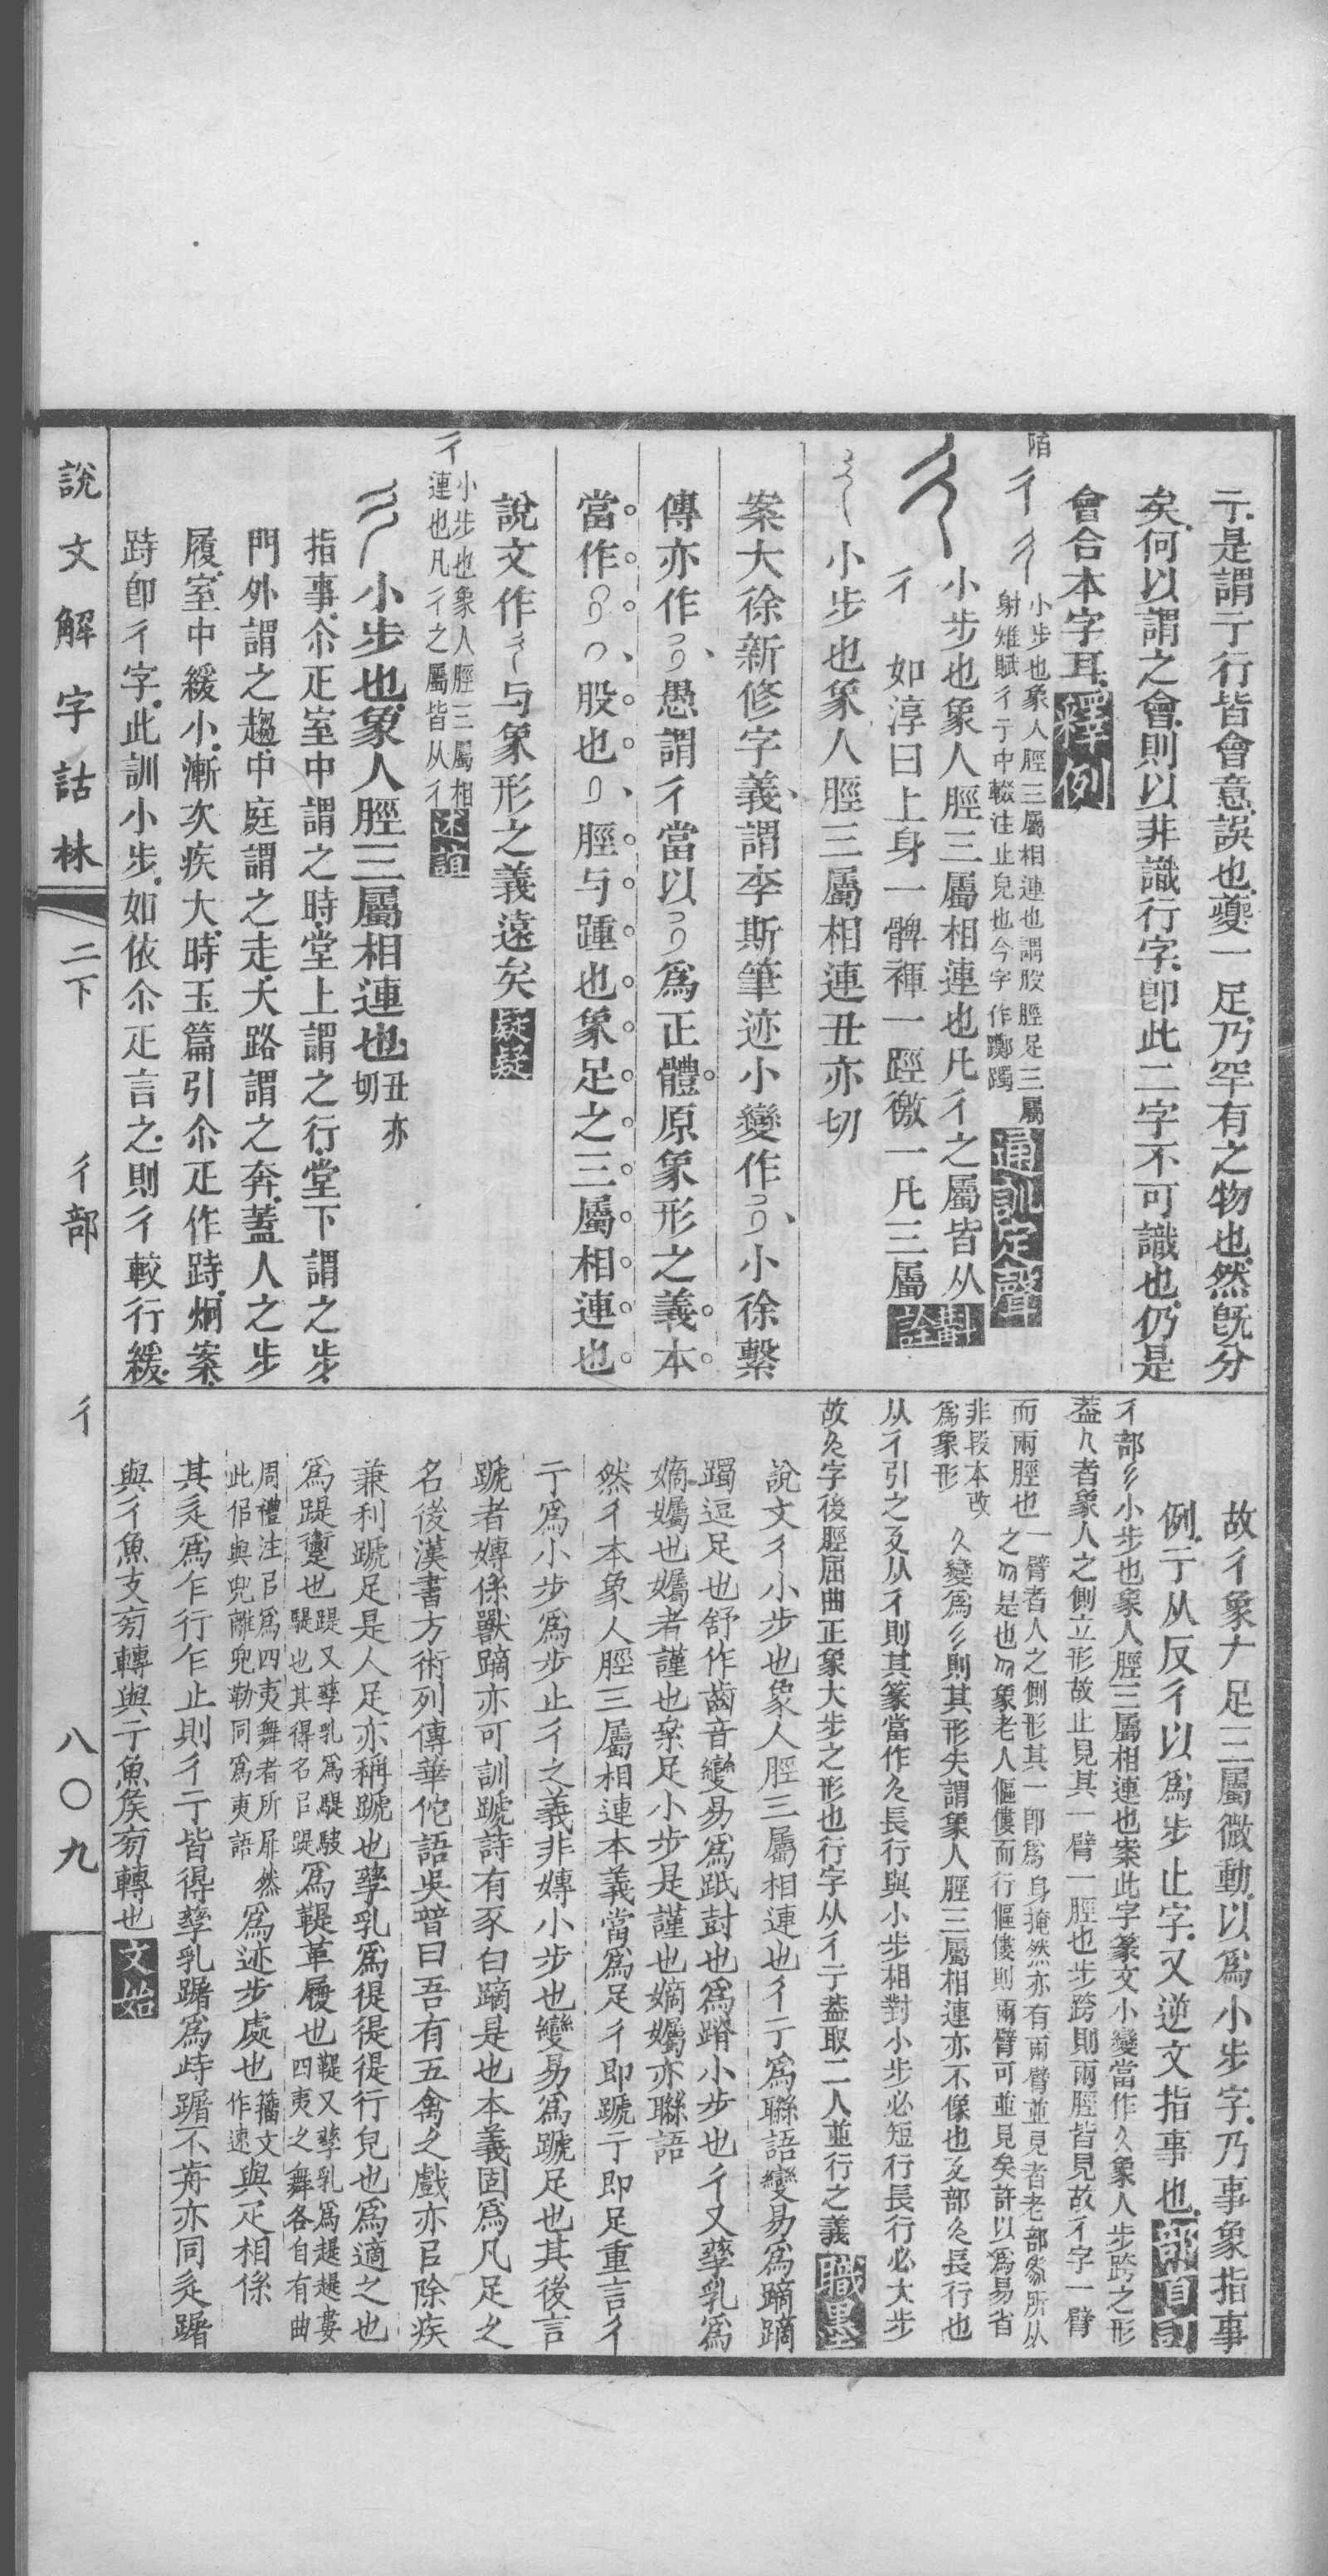 亍是謂亍行皆會意誤也夔一足乃罕有之物也然旣分
矣何以謂之會則以非識行字卽此二字不可識也仍是
會合本字耳釋例
陌彳
小步也象人脛三屬相連也謂股脛足三屬
射雉賦彳亍中輟注止皃也今字作躑躅
通訓定聲
小步也象人脛三屬相連也凡彳之屬皆从
彳 如淳曰上身一髀褌一踁繳一凡三屬
斠詮
小步也象人脛三屬相連丑亦切
案大徐新修字義謂李斯筆迹小變作 小徐繫
傳亦作 愚謂彳當以 爲正體原象形之義本
當作 股也 脛与踵也象足之三屬相連也
說文作 与象形之義遠矣疑疑
彳
小步也象人脛三屬相
連也凡彳之屬皆从彳
述誼
小步也象人脛三屬相連也丑亦切
指事尒疋室中謂之時堂上謂之行堂下謂之步
門外謂之趨中庭謂之走大路謂之奔蓋人之步
履室中緩小漸次疾大時玉篇引尒疋作跱炯案
跱卽彳字此訓小步如依尒疋言之則彳較行緩
故彳象 足三屬微動以爲小步字乃事象指事
例亍从反彳以爲步止字又逆文指事也部首訂
彳部 小步也象人脛三屬相連也案此字篆文小變當作 象人步跨之形
蓋 者象人之側立形故止見其一臂一脛也步跨則兩脛皆見故彳字一臂
而兩脛也
一臂者人之側形其一卽爲身掩然亦有兩臂並見者老部 所从
之 是也 象老人傴僂而行傴僂則兩臂可並見矣許以爲易省
非段本改
爲象形
變爲 則其形失謂象人脛三屬相連亦不像也 部 長行也
从彳引之 从彳則其篆當作 長行與小步相對小步必短行長行必大步
故 字後脛屈曲正象大步之形也行字从彳亍蓋取二人並行之義職墨
說文彳小步也象人脛三屬相連也彳亍爲聯語變易爲蹢蹢
躅逗足也舒作齒音變易爲 也爲蹐小步也彳又孳乳爲
嫡嫡孎也孎者謹也桒足小步是謹也嫡孎亦聯語
然彳本象人脛三屬相連本義當爲足彳卽蹏亍卽足重言彳
亍爲小步爲步止彳之義非嫥小步也變易爲蹏足也其後言
蹏者嫥係獸蹢亦可訓蹏詩有豕白蹢是也本義固爲凡足之
名後漢書方術列傳華佗語吳普曰吾有五禽之戲亦㠯除疾
兼利蹏足是人足亦稱蹏也孳乳爲徥徥徥行皃也爲適之也
爲踶躗也
踶又孳乳爲騠駃
騠也其得名㠯踶
爲鞮革履也
鞮又孳乳爲趧趧婁
四夷之舞各自有曲
周禮注㠯爲四夷舞者所屝然
此侣與兜離兜勒同爲夷語
爲迹步處也
籒文
作速
與疋相係
其辵爲乍行乍止則彳亍皆得孳乳躇爲峙躇不歬亦同辵躇
與彳魚支 轉與亍魚矦 轉也文始
說文解字詁林
二下
彳部
彳
八〇九